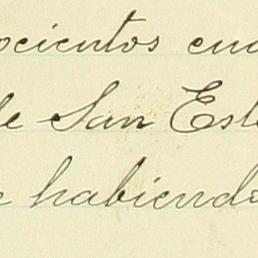 ocientos cua
de San Este
e habiendo